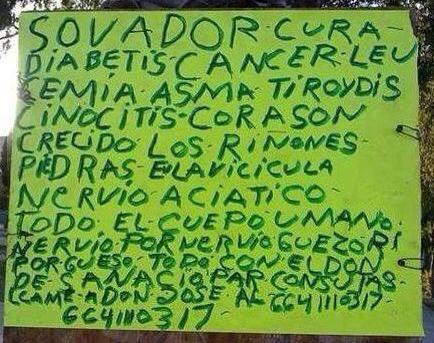 SOVADOR-CURA-
DIABETIS-CANCER-LEU
CEMIA-ASMA-TIROYDIS
CINOCITIS-CORASON
CRECIDO-LOS RINONES-
PIEDRAS-ELAVICICULA
NERVIO ACIATICO-
TODO EL CUEPO UMANO-
NERVIO-POR NERVIO GUEZO RI
POR GUESO-TODO CON EL DON
DE-ZANACIO PAR CONSUTAS-
LLAME-ADON JOSE AL 6641110317-
6641110317-